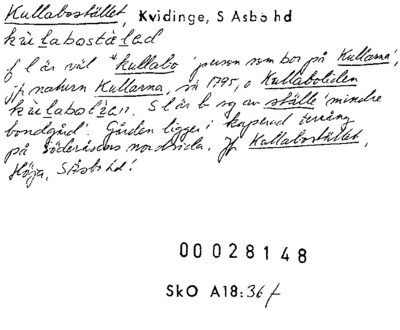 Kullabostället, Kvidinge, S Åsbo hd
kùlabostàlad
f l är väl *kullabo 'person som bor på Kullarna',
jfr naturn Kullarna, vi 1795, o Kullaboliden
kùlabolìan. S l är b sg av ställe 'mindre
bondgård'. Gården ligger i kuperad terräng
på Söderåsens nordsida. Jfr Kullabostället,
Höja, SÅsbo hd!
00028148
SkO A18:36 f